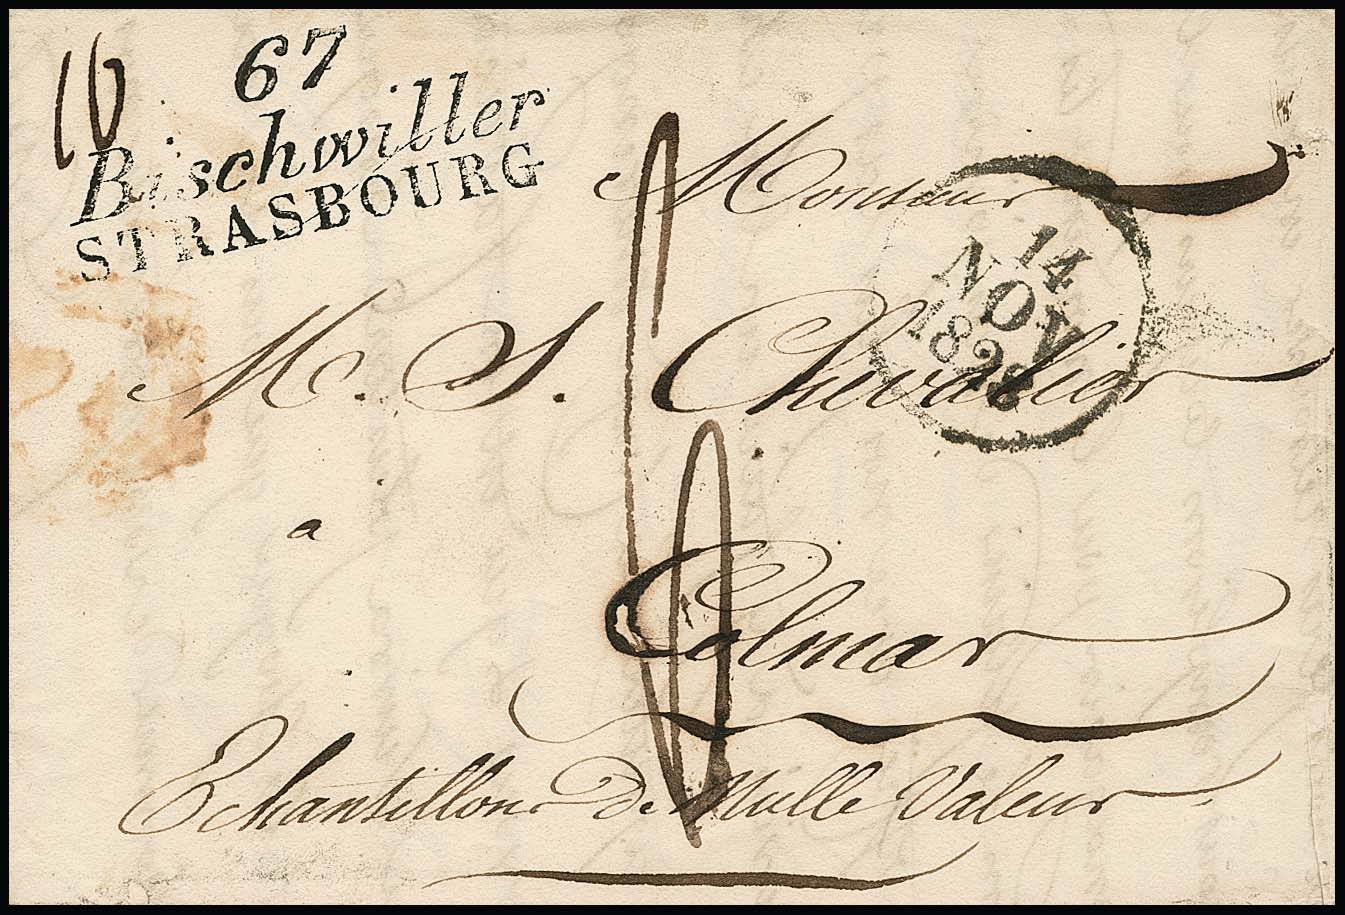 16
67
Bischwiller
STRASBOURG
Monsieur
14
NOV
1828
M. S. Chevalier
a
Colmar
Echantillons De Nulle Valeur